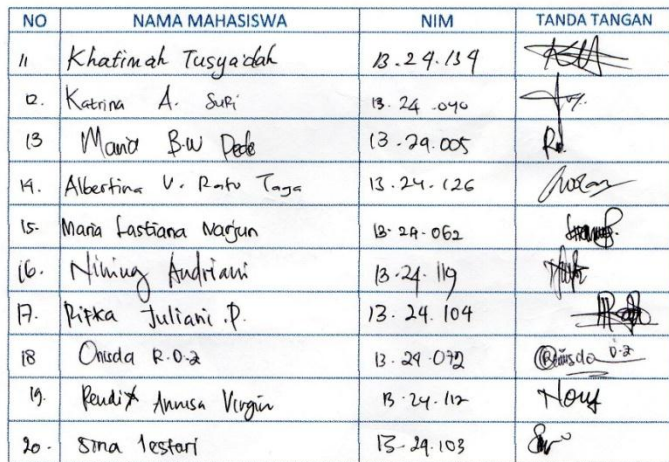 NO NAMA MAHASISWA NIM TANDA TANGAN
11 Khatimah Tusya'dah 13.24.134
12. Katrina A. Supi 13.24.040
13 Maria B.W Dede 13.24.005
14. Albertina V. Ratu Taga 13.24.126
15. Maria Lastiana Narjun 13.24.062
16. Nining Andriani 13.24.119
17. Ripka Juliani .P. 13.24.104
18 Onisda R.D.2 13.24.072
19. Annisa Virgin 13.24.112
20. Sina Lestari 13.24.103